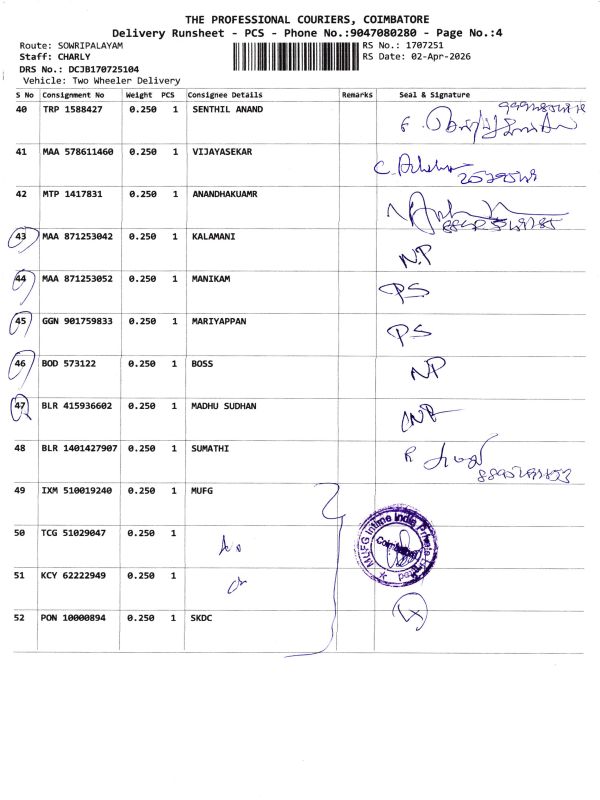 THE PROFESSIONAL COURIERS, COIMBATORE
Delivery Runsheet - PCS - Phone No.:9047080280 - Page No.:4
Route: SOWRIPALAYAM RS No.: 1707251
Staff: CHARLY RS Date: 02-Apr-2026
DRS No.: DCJB170725104
Vehicle: Two Wheeler Delivery
S No Consignment No Weight PCS Consignee Details Remarks Seal & Signature
40 TRP 1588427 0.250 1 SENTHIL ANAND
41 MAA 578611460 0.250 1 VIJAYASEKAR
42 MTP 1417831 0.250 1 ANANDHAKUAMR
43 MAA 871253042 0.250 1 KALAMANI NP
44 MAA 871253052 0.250 1 MANIKAM PS
45 GGN 901759833 0.250 1 MARIYAPPAN PS
46 BOD 573122 0.250 1 BOSS NP
47 BLR 415936602 0.250 1 MADHU SUDHAN
48 BLR 1401427907 0.250 1 SUMATHI
49 IXM 510019240 0.250 1 MUFG
MUFG Intime India Private Limited
Coimbatore
50 TCG 51029047 0.250 1
51 KCY 62222949 0.250 1
52 PON 10000894 0.250 1 SKDC